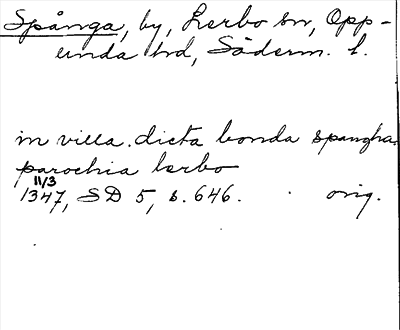 Spånga, by, Lerbo sn, Opp-
unda hd, Söderm. l.
in villa dicta bonda spangha
parochia lerbo
11/3
1347, SD 5, s. 646. orig.